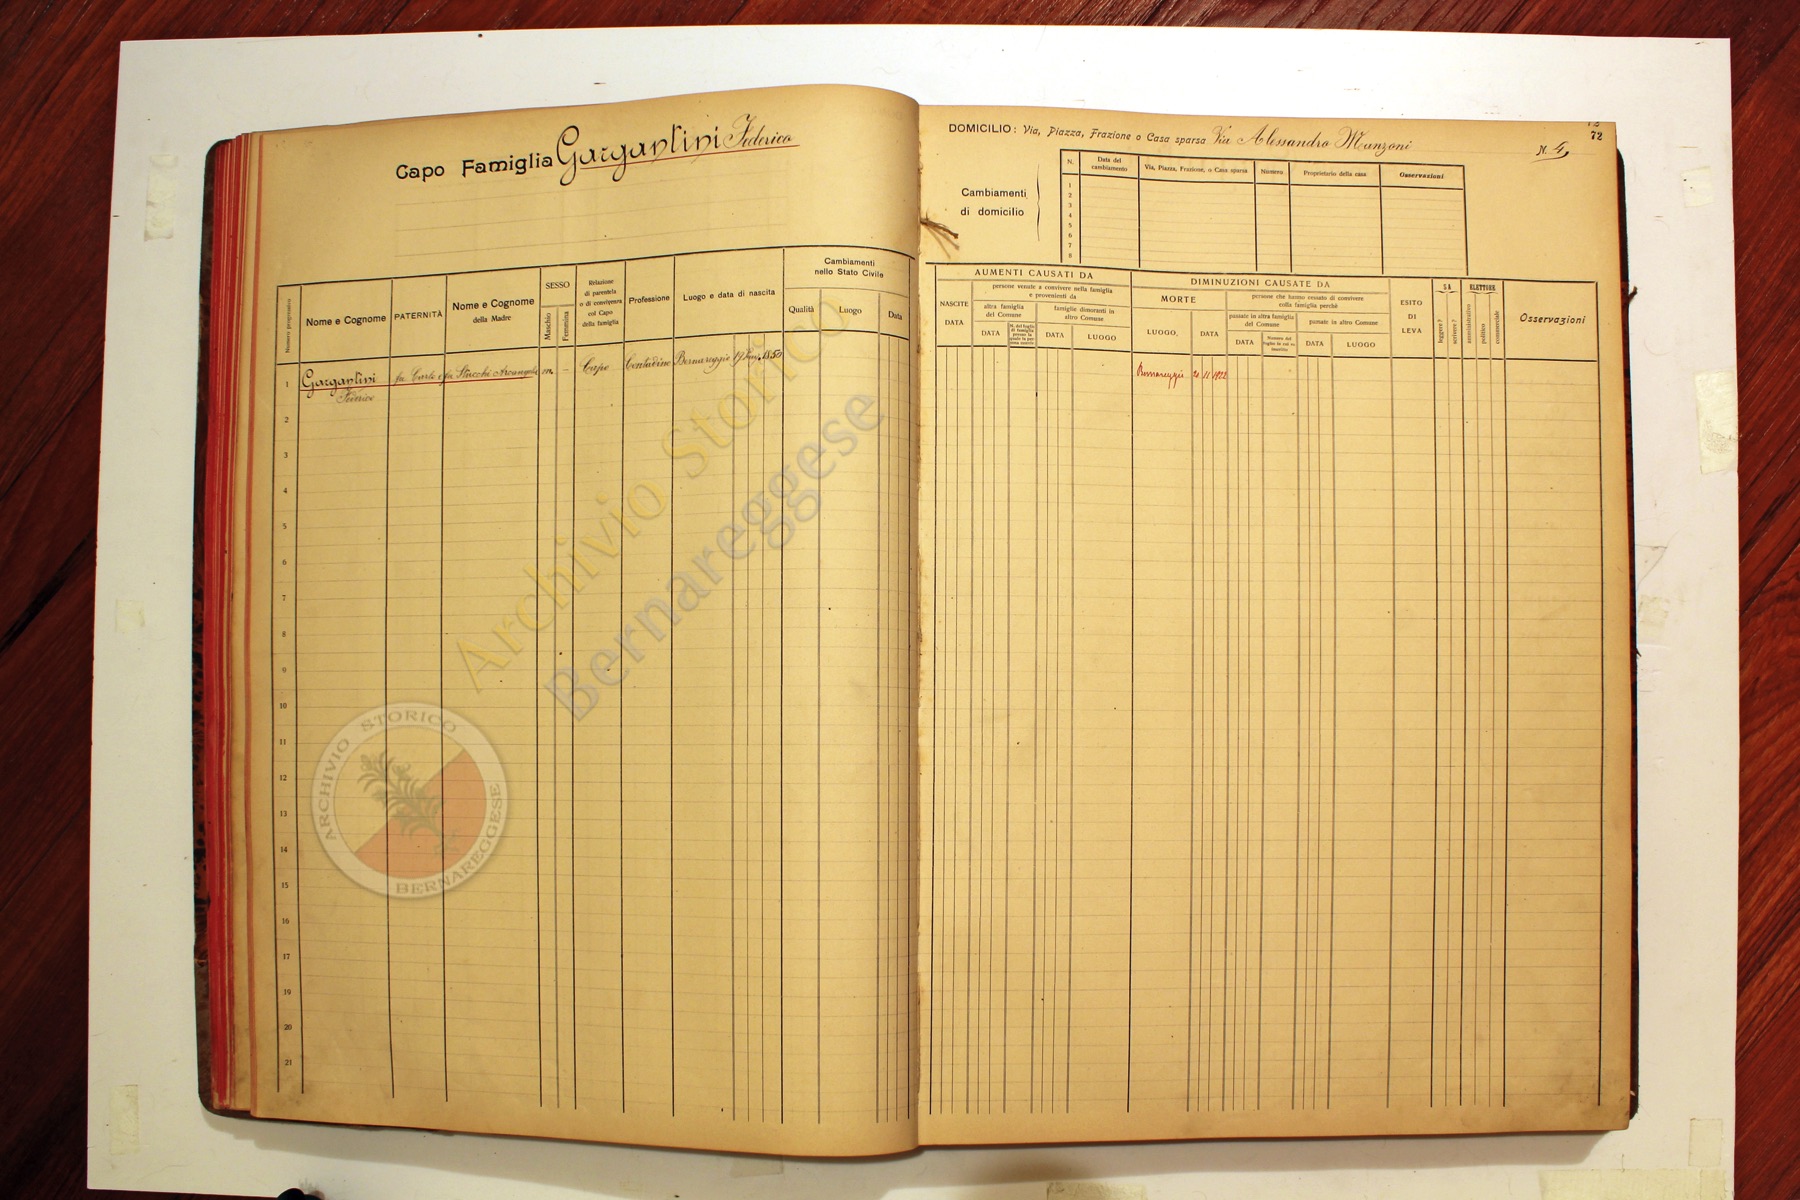 Capo Famiglia Gargantini Federico
Nome e Cognome
PATERNITÀ
Nome e Cognome
della Madre
SESSO
Maschio
Femmina
Relazione
di parentela
o di convivenza
col Capo
della famiglia
Professione
Luogo e data di nascita
Cambiamenti
nello Stato Civile
Qualità
Luogo
Data
Numero progressivo
1 Gargantini fu Carlo e fu Stucchi Arcangela m. – Capo Contadino Bernareggio 19 1850
Federico
2
3
4
5
6
7
8
9
10
11
12
13
14
15
16
17
19
20
21
72
DOMICILIO: Via, Piazza, Frazione o Casa sparsa Via Alessandro Manzoni N. 4
Cambiamenti
di domicilio
N.
Data del
cambiamento
Via, Piazza, Frazione, o Casa sparsa
Numero
Proprietario della casa
Osservazioni
1
2
3
4
5
6
7
8
AUMENTI CAUSATI DA
NASCITE
DATA
persone venute a convivere nella famiglia
e provenienti da
altra famiglia
del Comune
DATA
famiglie dimoranti in
altro Comune
DATA
LUOGO
DIMINUZIONI CAUSATE DA
MORTE
LUOGO.
DATA
persone che hanno cessato di convivere
colla famiglia perchè
passate in altra famiglia
del Comune
DATA
passate in altro Comune
DATA
LUOGO
ESITO
DI
LEVA
SA
leggere?
scrivere?
ELETTORE
amministrativo
politico
commerciale
Osservazioni
Bernareggio 20 11 1922
Archivio Storico
Bernareggese
ARCHIVIO STORICO
BERNAREGGESE